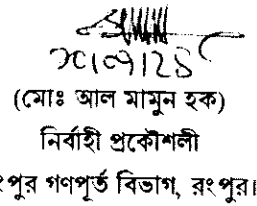 (মোঃ আল মামুন হক)
নির্বাহী প্রকৌশলী
ংপুর গণপূর্ত বিভাগ, রংপুর।